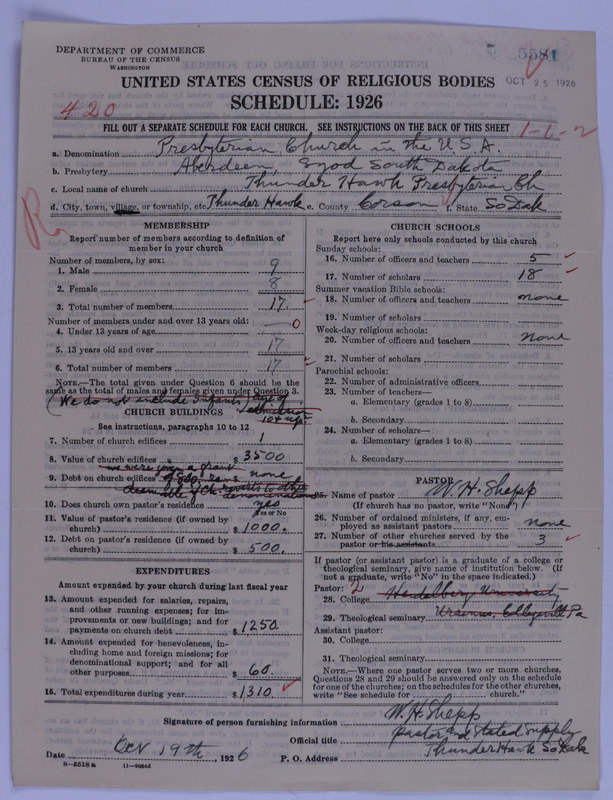 DEPARTMENT OF COMMERCE
BUREAU OF THE CENSUS
WASHINGTON
5581
OCT 25 1926
UNITED STATES CENSUS OF RELIGIOUS BODIES
SCHEDULE: 1926
420
FILL OUT A SEPARATE SCHEDULE FOR EACH CHURCH. SEE INSTRUCTIONS ON THE BACK OF THIS SHEET
1-6-2
a. Denomination Presbyterian Church in the U.S.A.
b. Presbytery Aberdeen, Synod South Dakota
c. Local name of church Thunder Hawk Presbyterian Ch
d. City, town, village, or township, etc. Thunder Hawk e. County Corson f. State So Dak
MEMBERSHIP
Report number of members according to definition of member in your church
Number of members, by sex:
1. Male 9
2. Female 8
3. Total number of members 17
Number of members under and over 13 years old:
4. Under 13 years of age 0
5. 13 years old and over 17
6. Total number of members 17
NOTE.—The total given under Question 6 should be the
same as the total of males and females given under Question 3.
(We do not include Infants age of
admission
10 + up.
CHURCH BUILDINGS
See instructions, paragraphs 10 to 12
7. Number of church edifices 1
8. Value of church edifices $ 3500
we were given a grant
9. Debt on church edifices none
10. Does church own pastor's residence yes
Yes or No
11. Value of pastor's residence (if owned by
church) $ 1000.
12. Debt on pastor's residence (if owned by
church) $ 500.
EXPENDITURES
Amount expended by your church during last fiscal year
13. Amount expended for salaries, repairs,
and other running expenses; for im-
provements or new buildings; and for
payments on church debt $ 1250.
14. Amount expended for benevolences, in-
cluding home and foreign missions; for
denominational support; and for all
other purposes $ 60.
15. Total expenditures during year $ 1310.
CHURCH SCHOOLS
Report here only schools conducted by this church
Sunday schools:
16. Number of officers and teachers 5
17. Number of scholars 18
Summer vacation Bible schools:
18. Number of officers and teachers none
19. Number of scholars
Week-day religious schools:
20. Number of officers and teachers none
21. Number of scholars
Parochial schools:
22. Number of administrative officers
23. Number of teachers—
a. Elementary (grades 1 to 8)
b. Secondary
24. Number of scholars—
a. Elementary (grades 1 to 8)
b. Secondary
PASTOR
25. Name of pastor W. H. Shepp
(If church has no pastor, write "None")
26. Number of ordained ministers, if any, em-
ployed as assistant pastors none
27. Number of other churches served by the
pastor or his assistants 3
If pastor (or assistant pastor) is a graduate of a college or
theological seminary, give name of institution below. (If
not a graduate, write "No" in the space indicated.)
Pastor: 2
28. College Heidelberg University
29. Theological seminary Ursinus, Collegeville Pa
Assistant pastor:
30. College
31. Theological seminary
NOTE.—Where one pastor serves two or more churches,
Questions 28 and 29 should be answered only on the schedule
for one of the churches; on the schedules for the other churches,
write "See schedule for church."
Signature of person furnishing information W. H. Shepp
Official title Pastor and Stated Supply
Date Oct 19th, 1926 P. O. Address Thunder Hawk So Dak
8—5518 a 11—9056d